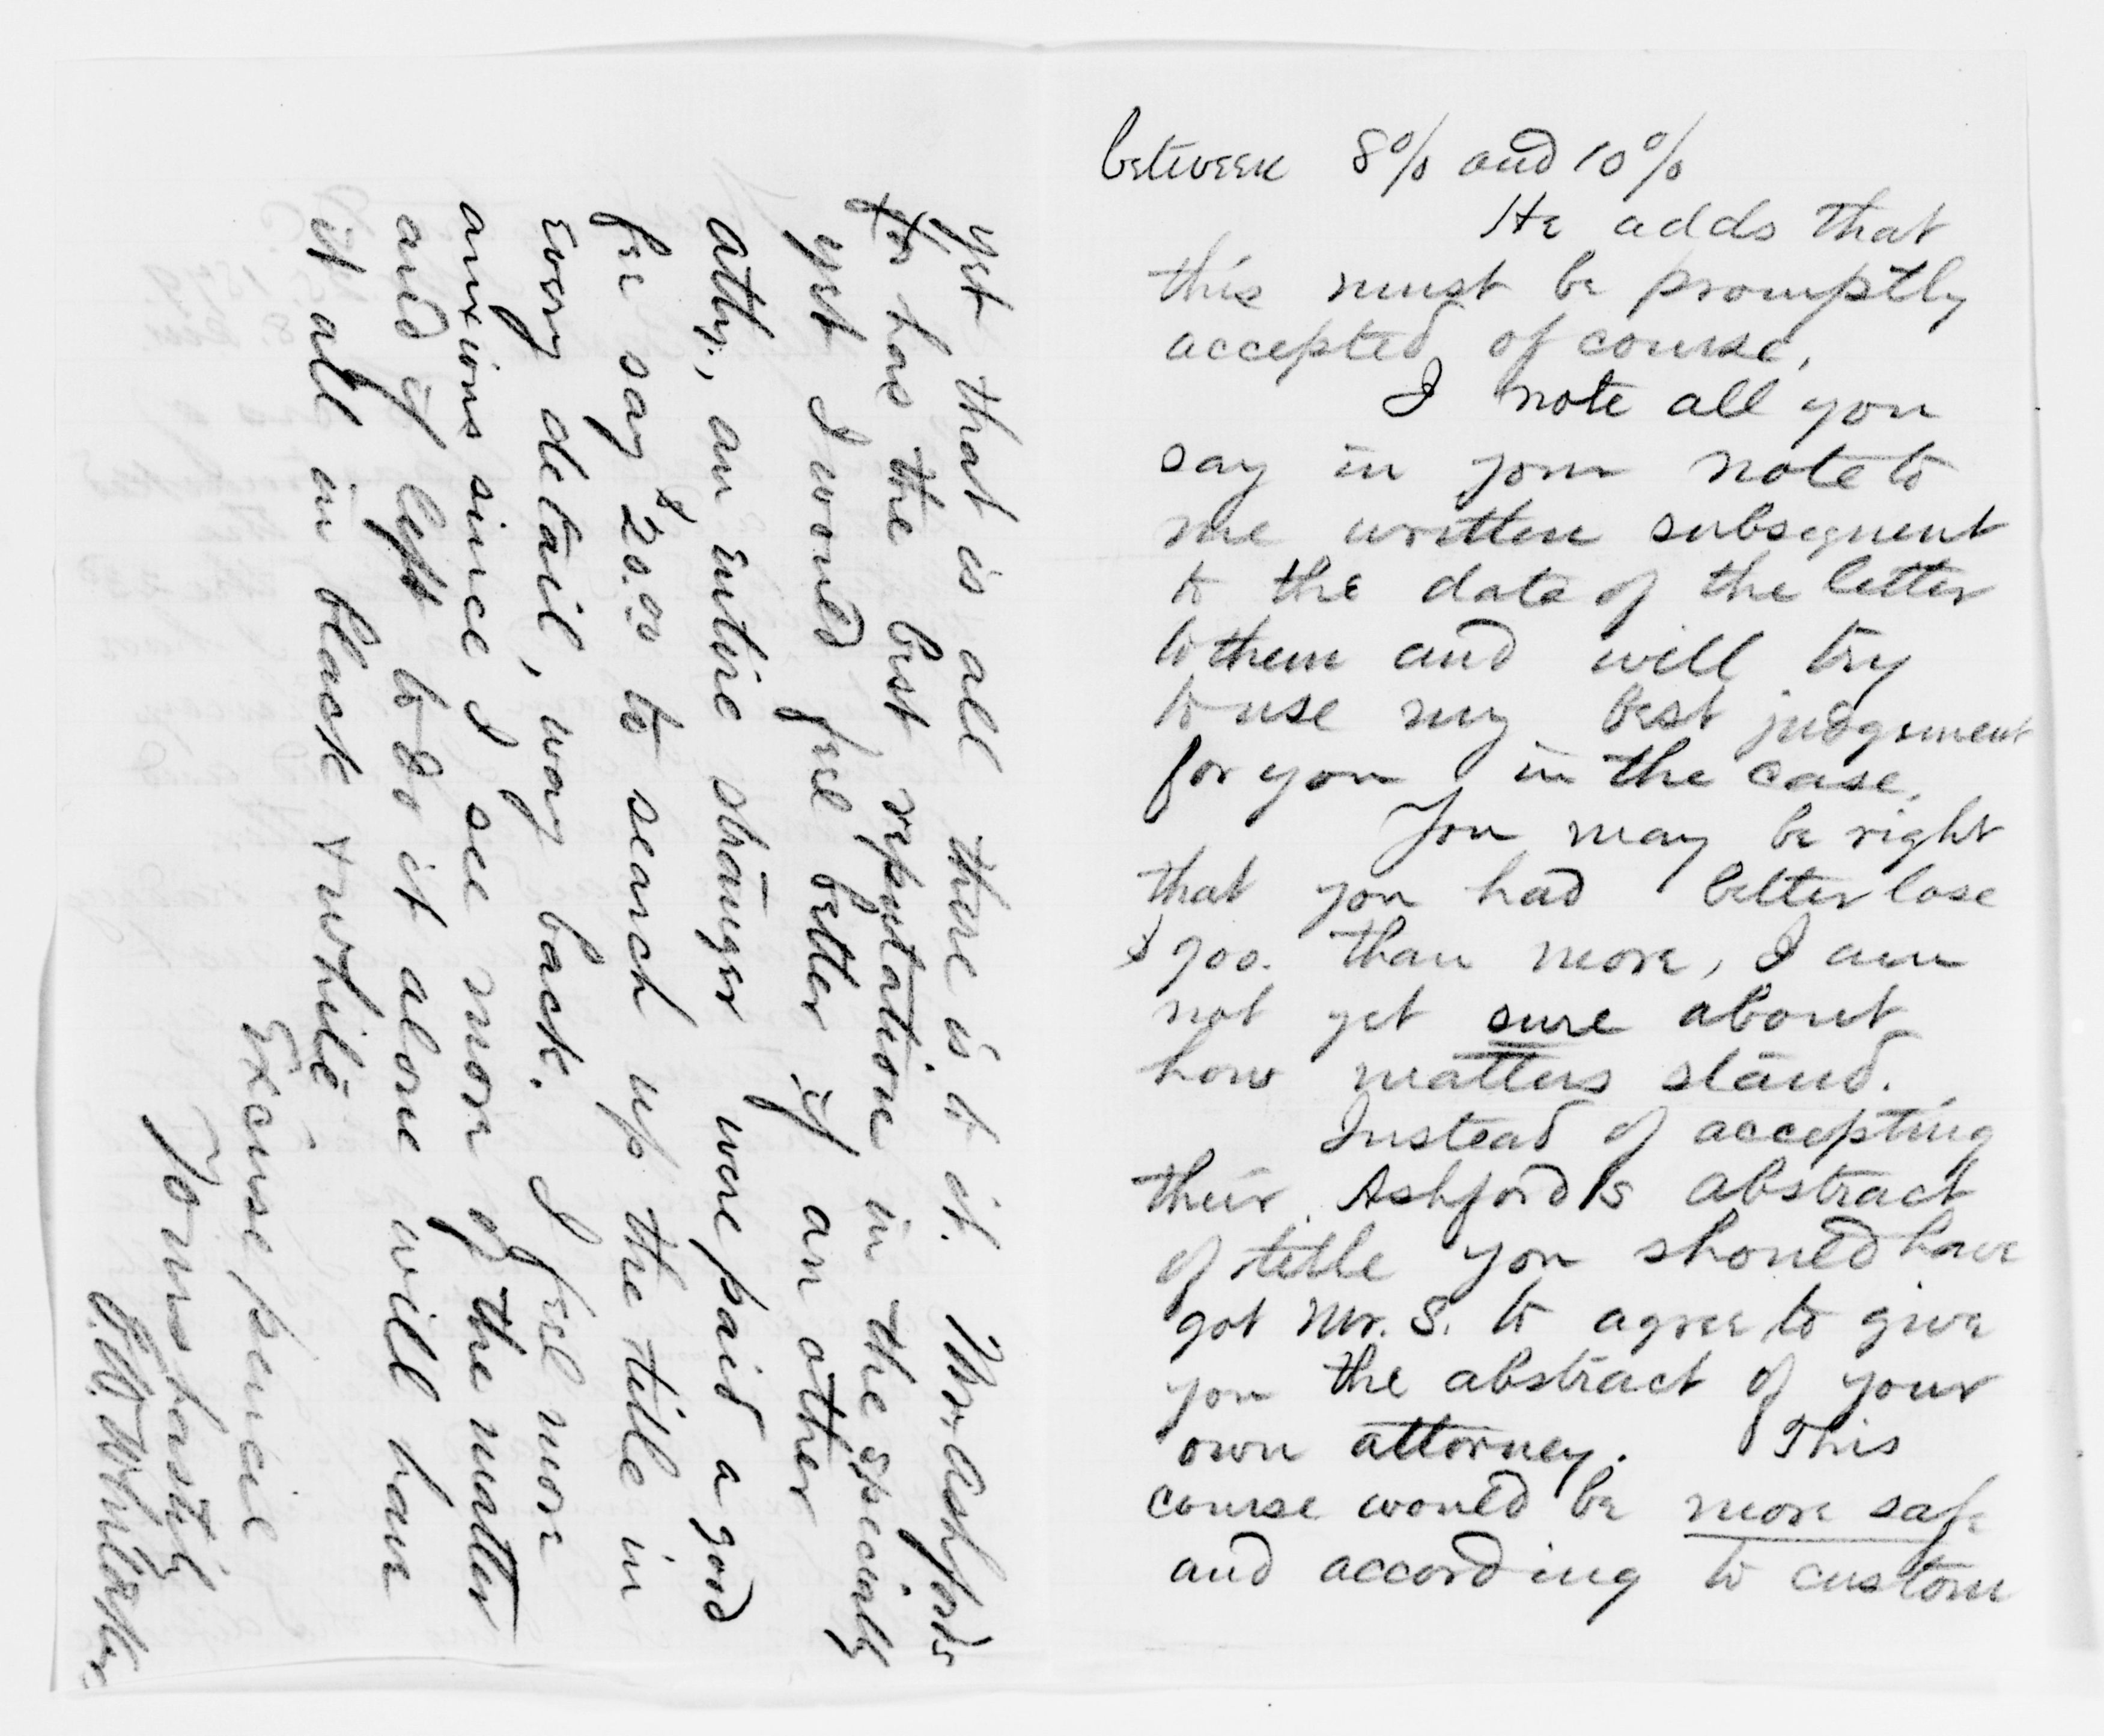 between 8% and 10%
He adds that
this must be promptly
accepted of course,
I note all you
say in your note to
me written subsequent
to the date of the letter
to them and will try
to use my best judgment
for you in the case.
You may be right
that you had better lose
$900. than more, I am
not yet sure about
how matters stand.
Instead of accepting
their Ashford's abstract
of title you should have
got Mr. S. to agree to give
you the abstract of your
own attorney. This
course would be more safe
and according to custom
yet that is all there is to it. Mr. Ashford
has the best reputation in the specialty
yet I would feel better if an other
atty., an entire stranger were paid a good
fee say $20.00 to search up the title in
every detail, way back. I feel more
anxious since I see more of the matter
and if left to do it alone will have
it all in black & white
Excuse pencil
Yours hastily